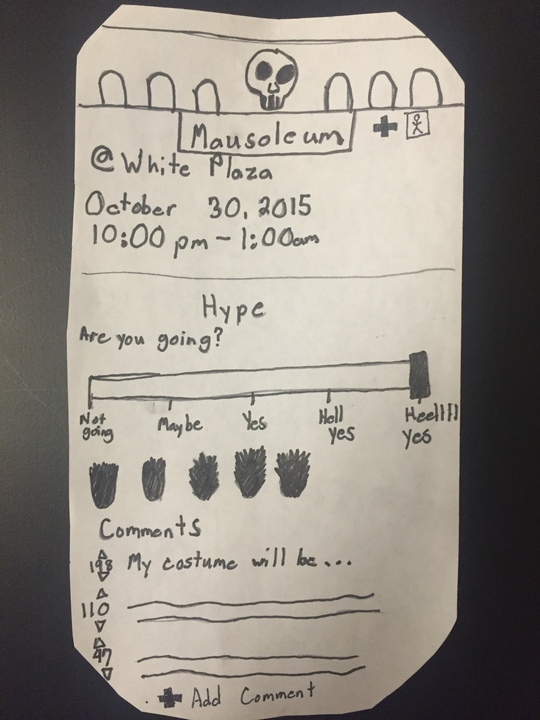 Mausoleum
@ White Plaza
October 30, 2015
10:00 pm - 1:00am
Hype
Are you going?
Not going
Maybe
Yes
Hell yes
Heellll yes
Comments
198 My costume will be...
110
47
Add Comment